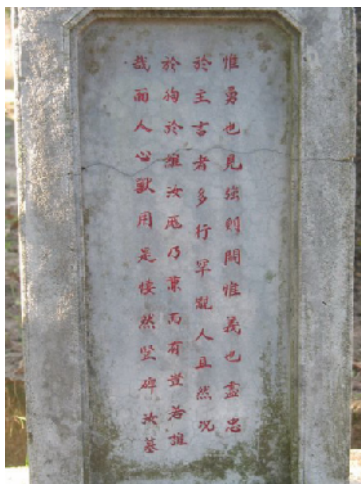 惟勇也見強則鬪惟義也盡忠
於主言者多行罕覯人且然況
於狗於維汝厖乃兼而有豈若誰
哉面人心獸用是悽然竪碑汝墓